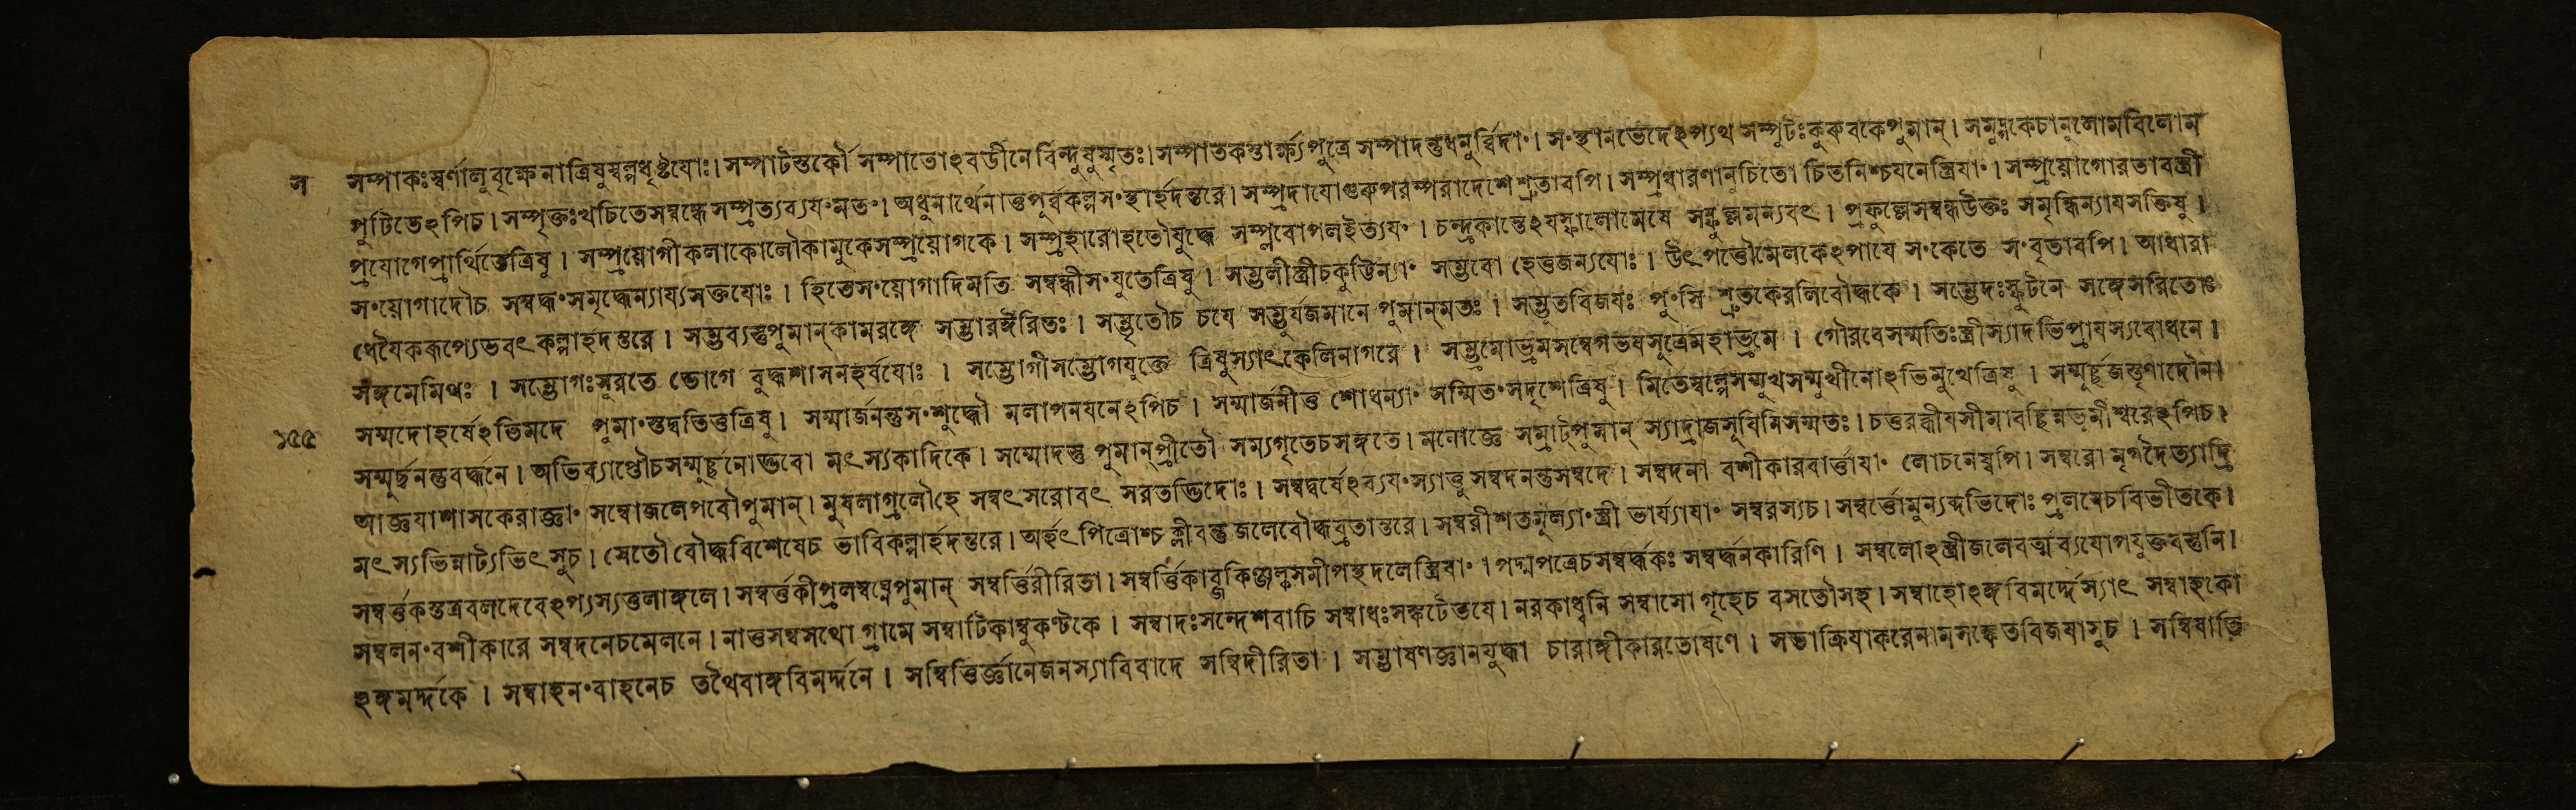 স সম্পাকঃস্বর্ণালুবৃক্ষেনাত্রিষুস্বল্পধৃষ্টযোঃ। সম্পাটস্তর্কৌ সম্পাতোঽবডীনে বিন্দুষুস্মৃতঃ। সম্পাতকস্তার্ক্ষ্যপুত্রে সম্পাদস্তুধনুর্ব্বিদাং। সংস্থানভেদেঽপ্যথ সম্পুটঃকুরুবকেপুমান্। সমুদ্গকেচানুলোমবিলোম
পুটিতেঽপিচ। সম্পৃক্তঃখচিতেসম্বদ্ধেসম্প্রত্যব্যযংমতং। অধুনার্থেনাত্তপূর্ব্বকল্পসংস্থার্হদন্তরে। সম্প্রদাযোগুরুপরম্পরাদেশেশ্রুতাবপি। সম্প্রধারণানুচিতো চিতনিশ্চযনেস্ত্রিযাং। সম্প্রয়োগোরতাবস্ত্রী
প্রযোগেপ্রার্থিতেত্রিষু। সম্প্রয়োগীকলাকোলৌকামুকেসম্প্রয়োগকে। সম্প্রহারোহতৌযুদ্ধে সম্প্লবোপলইত্যযং। চন্দ্রকান্তেঽযস্কালোমেষে সম্ফুল্লমন্যবৎ। প্রফুল্লেসম্বন্ধউক্তঃ সমৃদ্ধিন্যাযসক্তিষু।
সংয়োগাদৌচ সম্বদ্ধংসমৃদ্ধেন্যায্যসক্তযোঃ। হিতেসংয়োগাদিমতি সম্বন্ধীসংযুতেত্রিষু। সম্ভলীস্ত্রীচকুট্টিন্যাং সম্ভবো হেতুজন্যযোঃ। উৎপত্তৌমেলকেঽপাযে সংকেতে সংবৃতাবপি। আধারা
ধেযৈকরূপ্যেভবৎকল্পার্হদন্তরে। সম্ভব্যস্তুপুমান্কামরঙ্গে সম্ভারঈরিতঃ। সম্ভৃতৌচ চযে সম্ভুর্যজমানে পুমান্মতঃ। সম্ভূতবিজযঃ পুংসি শ্রুতকেবলিবৌদ্ধকে। সম্ভেদঃস্ফুটনে সঙ্গেসরিতোঃ
সঙ্গমেমিথঃ। সম্ভোগঃসুরতে ভোগে বুদ্ধশাসনহর্ষযোঃ। সম্ভোগীসম্ভোগযুক্তে ত্রিষুস্যাৎকেলিনাগরে। সম্ভ্রমোভ্রমসম্বেগভযসুত্রেমহাভ্রমে। গৌরবেসম্মতিঃস্ত্রীস্যাদভিপ্রাযস্যবোধনে।
১৫৫ সম্মদোহর্ষেঽভিমদে পুমাংস্তদ্বতিতত্রিষু। সম্মার্জনন্তুসংশুদ্ধৌ মলাপনযনেঽপিচ। সম্মার্জনীত্ত শোধন্যাং সম্মিতংসদৃশেত্রিষু। মিতেস্বল্পেসম্মুখসম্মুখীনোঽভিমুখেত্রিষু। সম্মূর্চ্ছজস্তৃণাদৌনা
সম্মূর্চ্ছনন্তুবর্দ্ধনে। অভিব্যাপ্তৌচসম্মূর্চ্ছনোদ্ভবো মৎস্যকাদিকে। সম্মোদস্তু পুমান্প্রীতৌ সম্যগৃতেচসঙ্গতে। মনোজ্ঞে সম্রাট্পুমান্ স্যাদ্রাজসূযিনিসম্মতঃ। চতুরব্ধীযসীমাবচ্ছিন্নভূমীশ্বরেঽপিচ।
আজ্ঞযাশাসকেরাজ্ঞাং সম্বোজলেপবৌপুমান্। মুষলাগ্রলৌহে সম্বৎসরোবৎ সরতদ্ভিদোঃ। সম্বদ্বর্ষেঽব্যযংস্যাত্তু সম্বদনন্তুসম্বদে। সম্বদনা বশীকারবার্ত্তাযাং লোচনেষ্বপি। সম্বরো মৃগদৈত্যাদ্রি
মৎস্যভিন্নাট্যভিৎসুচ। সেতৌ বৌদ্ধবিশেষেচ ভাবিকল্পার্হদন্তরে। অর্হৎপিত্রোশ্চ ক্লীবন্তু জলেবৌদ্ধব্রতান্তরে। সম্বরীশতমূল্যাংস্ত্রী ভার্য্যাযাং সম্বরস্যচ। সম্বর্ত্তোমুন্যব্দভিদোঃ প্রলযেচবিভীতকে।
সম্বর্ত্তকস্তত্রবলদেবেঽপ্যস্যত্তলাঙ্গলে। সম্বর্ত্তকীপ্রলম্বঘ্নেপুমান্ সম্বর্ত্তিরীরিতা। সম্বর্ত্তিকাব্জকিঞ্জল্কসমীপস্থদলেস্ত্রিযাং। পদ্মপত্রেচসম্বর্দ্ধকঃ সম্বর্দ্ধনকারিণি। সম্বলোঽস্ত্রীজলেবর্ত্মব্যযোপযুক্তবস্তুনি।
সম্বলনংবশীকারে সম্বদনেচমেলনে। নাত্তসম্বসথো গ্রামে সম্বাটিকাম্বুকণ্টকে। সম্বাদঃসন্দেশবাচি সম্বাধঃসঙ্কটেভযে। নরকাধ্বনি সম্বাসো গৃহেচ বসতৌসহ। সম্বাহোঽঙ্গবিমর্দ্দেস্যাৎ সম্বাহকো
ঽঙ্গমর্দ্দকে। সম্বাহনংবাহনেচ তথৈবাঙ্গবিমর্দ্দনে। সম্বিত্তির্জ্ঞানেজনস্যাবিবাদে সম্বিদীরিতা। সম্ভাষণজ্ঞানযুদ্ধা চারাঙ্গীকারতোষণে। সভাক্রিযাকরেনামসঙ্কেতবিজযাসুচ। সম্বিষাতি